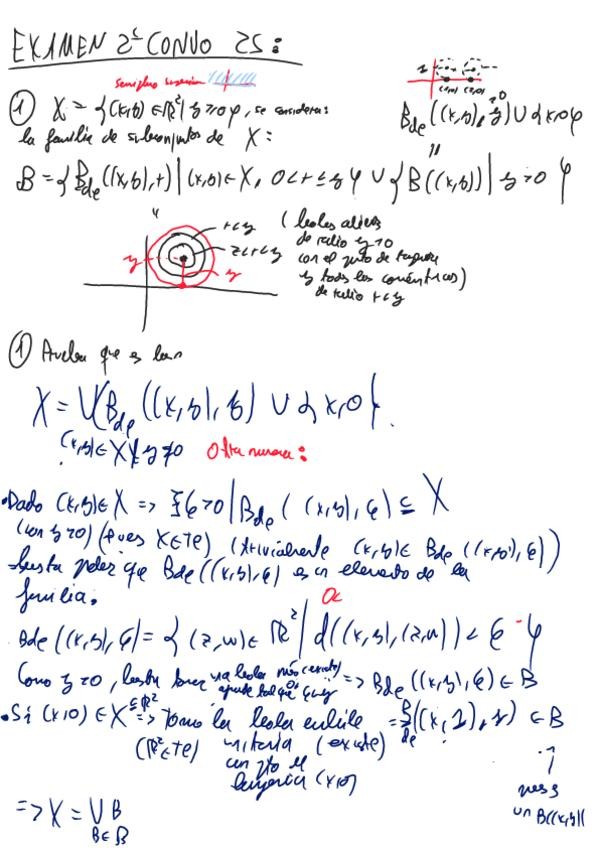 EXAMEN 2ª CONVO 25:
Semiplano superior
① X = {(x,y) ∈ ℝ² | y ≥ 0}, se considera:
la familia de subconjuntos de X:
(1,0) (2,0)
y>0
B_de((x,y), y) ∪ {x,0}
"
B = {B_de((x,y),r) | (x,y) ∈ X, 0<r≤y} ∪ {B((x,y)) | y>0}
r<y
2<r<y
y
y
(bolas abiertas
de radio y>0
con el pto de tangencia
y todas las concéntricas)
de radio r<y
① que es
X = ∪(B_de((x,y), y) ∪ {x,0}.
(x,y)∈X | y≠0
Otra manera:
• Dado (x,y) ∈ X => ∃ϵ>0 | B_de((x,y), ϵ) ⊆ X
(con y>0) (pues X∈Te) (trivialmente (x,y) ∈ B_de((x,y), ϵ))
basta ver que B_de((x,y), ϵ) es un elemento de la
familia.
B_de((x,y), ϵ) = {(z,w) ∈ ℝ² | d((x,y),(z,w)) < ϵ}
Como y>0, basta tomar una bola más => B_de((x,y), ϵ) ∈ B
• Si (x,0) ∈ X ⊆ℝ² => Tomo la bola = B_de((x,1),1) ∈ B
(ℝ²∈Te) unitaria (existe)
con pto de
tangencia (x,0)
un B((x,y))
=> X = ∪ B
B∈B